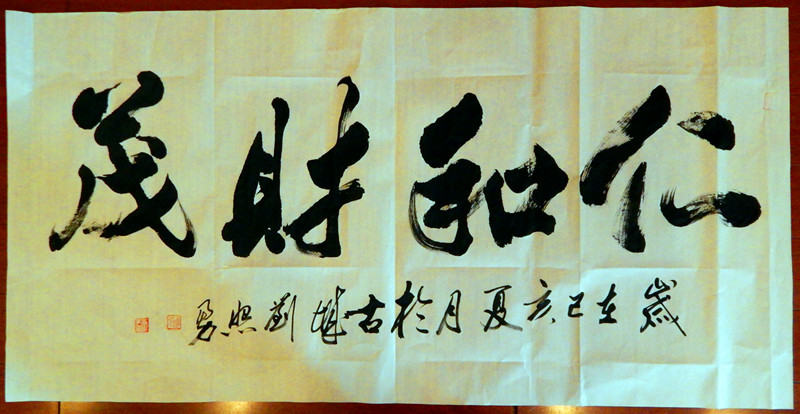 仁和財茂
歲在己亥夏月於古城劉照勇